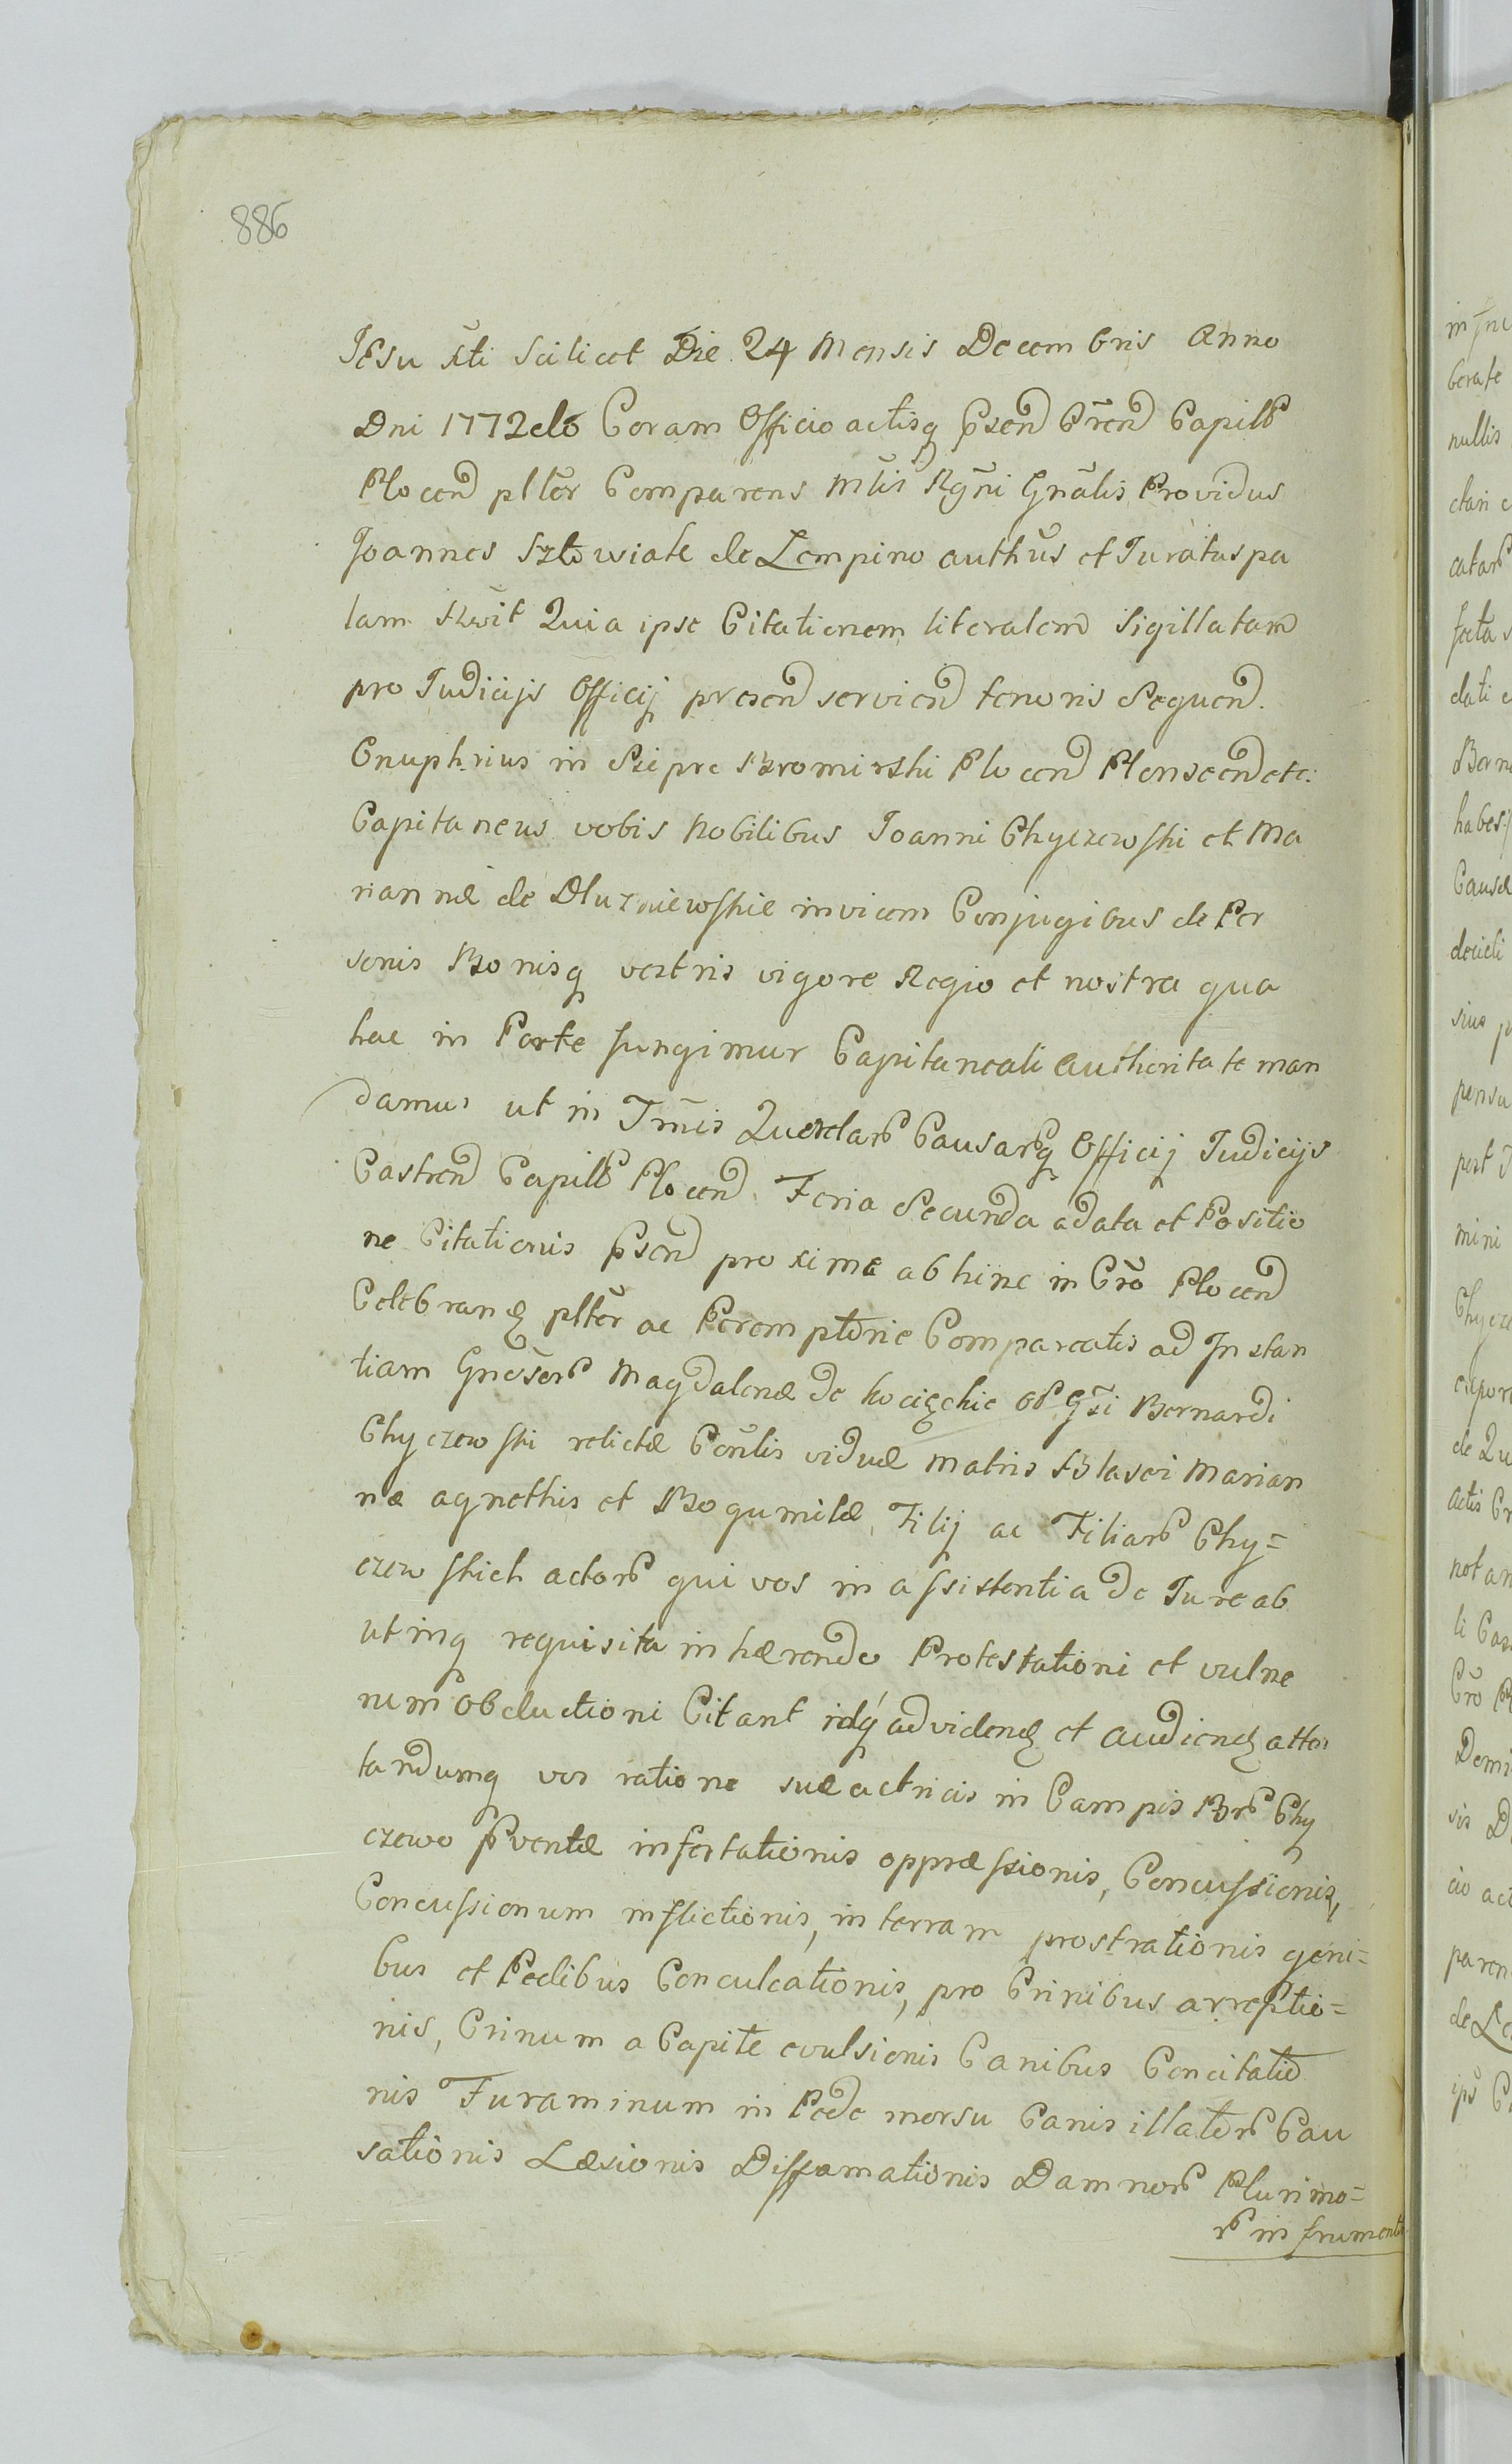 886
JEsu Xti Scilicet Die 24 Mensis Decembris Anno
Dni 1772do Coram Officio actisq Psend Crend Capilb
Plocend plter Comparens Mlis Rgni Gnalis Providus
Joannes Szlowiak de Lempino authus et Juratus pa
lam Rvit Quia ipse Citationem literalem Sigillatam
pro Judicijs Officij presend serviend tenoris Sequend.
Onuphrius in Siepre Bromirski Plocend Plonscend etc:
Capitaneus vobis Nobilibus Joanni Chyczewski et Ma
riannæ de Dluzniewskie invicem Conjugibus de Per
sonis Bonisq vestris vigore Regio et nostra qua
hac in Parte fungimur Capitaneali Authoritate man
damus ut in Tmis Querelarb Causarq Officij Judicijs
Castrend Capilb Plocend Feria Secunda a data et Positio
ne Citationis Psend proxima abhinc in Cro Plocend
Celebranq plter ac Peremptorie Compareatis ad Instan
tiam Gnosorb Magdalenæ de Kocięckie ob Gsi Bernardi
Chyczewski relictæ Conlis viduæ Matris Blasei Marian
næ Agnethis et Bogumilæ, Filij ac Filiarb Chy=
czewskich actorb qui vos in assistentia de Jure ab
utinq requisita in hærendo Protestationi et vulne
rum obductioni Citant idq ad videnq et audienq atten
tandumq vos ratione suæ actricis in Campis Brb Chy
czewo Pventæ infestationis oppræssionis, Concussionis,
Concussionum inflictionis, in terram prostrationis geni=
bus et Pedibus Conculcationis, pro Crinibus arreptio=
nis, Crinum a Capite evulsionis Canibus Concitatio
nis Furaminum in Pede morsu Canis illatorb Cau
sationis Læsionis Diffamationis Damnorb Plurimo=
rb in frumento